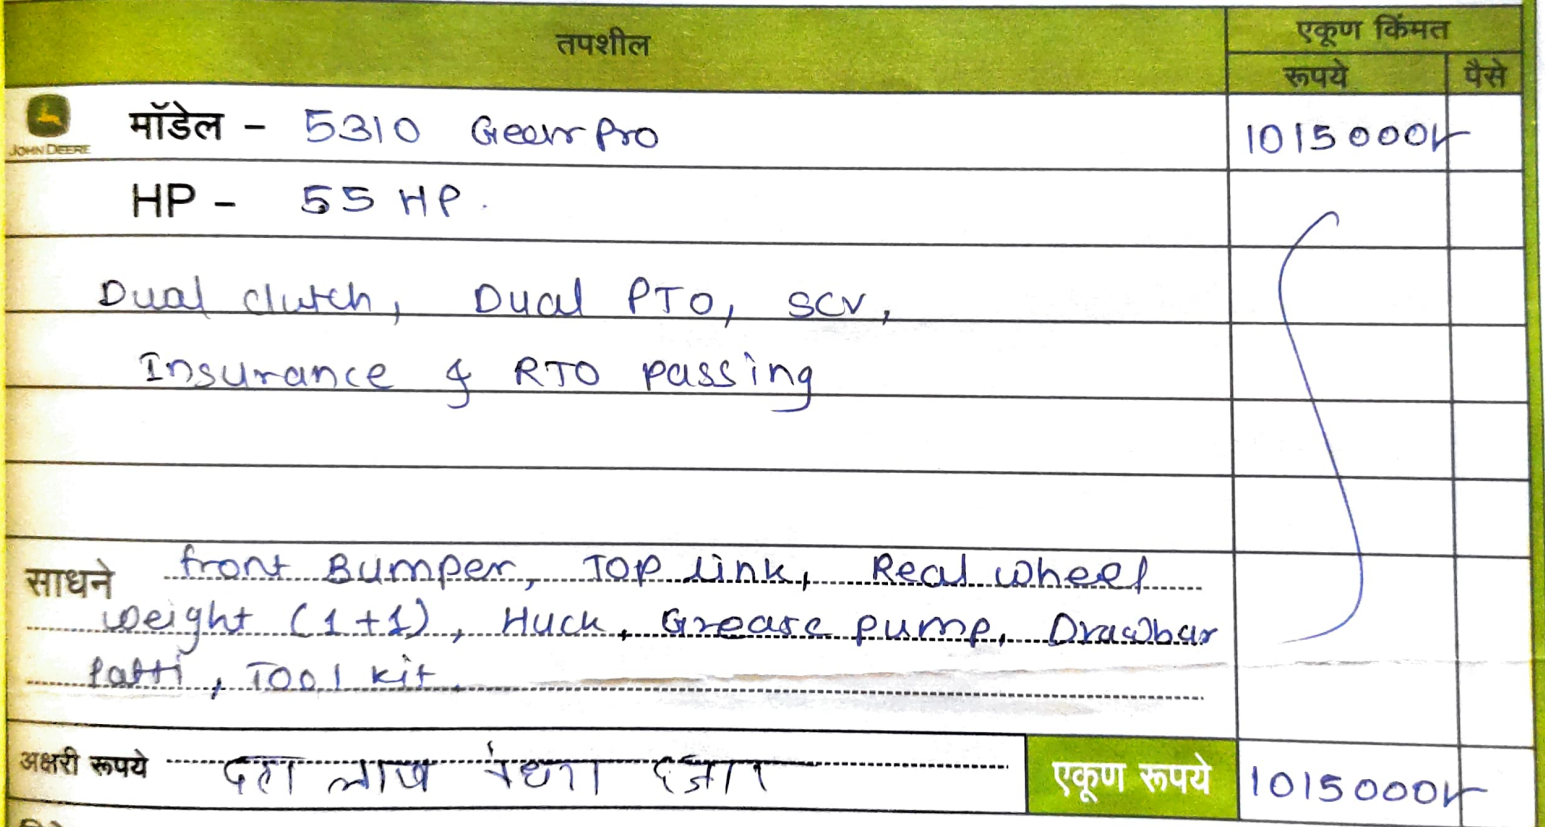 तपशील
एकूण किंमत
रूपये
पैसे
JOHN DEERE
मॉडेल - 5310 Gear Pro
1015000/-
HP - 55 HP.
Dual clutch, Dual PTO, SCV,
Insurance & RTO passing
साधने front Bumper, TOP Link, Real wheel
weight (1+1), Huck, Grease pump, Drawbar
Patti, Tool kit.
अक्षरी रूपये दहा लाख पंधरा हजार
एकूण रूपये
1015000/-